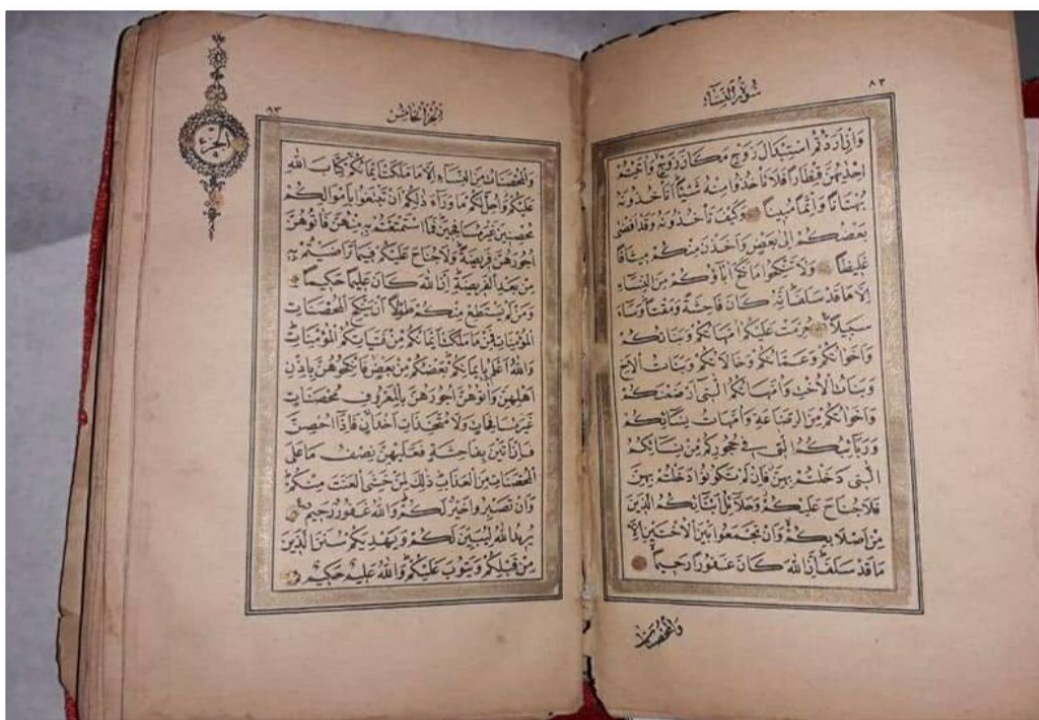 سورة النساء
وَاِنْ اَرَدْتُمُ اسْتِبْدَالَ زَوْجٍ مَكَانَ زَوْجٍ وَاٰتَيْتُمْ
اِحْدٰيهُنَّ قِنْطَارًا فَلَا تَأْخُذُوا مِنْهُ شَيْئًا اَتَأْخُذُونَهُ
بُهْتَانًا وَاِثْمًا مُبِينًا وَكَيْفَ تَأْخُذُونَهُ وَقَدْ اَفْضٰى
بَعْضُكُمْ اِلٰى بَعْضٍ وَاَخَذْنَ مِنْكُمْ مِيثَاقًا
غَلِيظًا وَلَا تَنْكِحُوا مَا نَكَحَ اٰبَاؤُكُمْ مِنَ النِّسَاءِ
اِلَّا مَا قَدْ سَلَفَ اِنَّهُ كَانَ فَاحِشَةً وَمَقْتًا وَسَاءَ
سَبِيلًا حُرِّمَتْ عَلَيْكُمْ اُمَّهَاتُكُمْ وَبَنَاتُكُمْ
وَاَخَوَاتُكُمْ وَعَمَّاتُكُمْ وَخَالَاتُكُمْ وَبَنَاتُ الْاَخِ
وَبَنَاتُ الْاُخْتِ وَاُمَّهَاتُكُمُ الّٰتِى اَرْضَعْنَكُمْ
وَاَخَوَاتُكُمْ مِنَ الرَّضَاعَةِ وَاُمَّهَاتُ نِسَائِكُمْ
وَرَبَائِبُكُمُ الّٰتِى فِى حُجُورِكُمْ مِنْ نِسَائِكُمُ
الّٰتِى دَخَلْتُمْ بِهِنَّ فَاِنْ لَمْ تَكُونُوا دَخَلْتُمْ بِهِنَّ
فَلَا جُنَاحَ عَلَيْكُمْ وَحَلَائِلُ اَبْنَائِكُمُ الَّذِينَ
مِنْ اَصْلَابِكُمْ وَاَنْ تَجْمَعُوا بَيْنَ الْاُخْتَيْنِ اِلَّا
مَا قَدْ سَلَفَ اِنَّ اللّٰهَ كَانَ غَفُورًا رَحِيمًا
وَالْمُحْصَنَاتُ
الجزء الخامس
الجزء
وَالْمُحْصَنَاتُ مِنَ النِّسَاءِ اِلَّا مَا مَلَكَتْ اَيْمَانُكُمْ كِتَابَ اللّٰهِ
عَلَيْكُمْ وَاُحِلَّ لَكُمْ مَا وَرَاءَ ذٰلِكُمْ اَنْ تَبْتَغُوا بِاَمْوَالِكُمْ
مُحْصِنِينَ غَيْرَ مُسَافِحِينَ فَمَا اسْتَمْتَعْتُمْ بِهِ مِنْهُنَّ فَاٰتُوهُنَّ
اُجُورَهُنَّ فَرِيضَةً وَلَا جُنَاحَ عَلَيْكُمْ فِيمَا تَرَاضَيْتُمْ بِهِ
مِنْ بَعْدِ الْفَرِيضَةِ اِنَّ اللّٰهَ كَانَ عَلِيمًا حَكِيمًا
وَمَنْ لَمْ يَسْتَطِعْ مِنْكُمْ طَوْلًا اَنْ يَنْكِحَ الْمُحْصَنَاتِ
الْمُؤْمِنَاتِ فَمِنْ مَا مَلَكَتْ اَيْمَانُكُمْ مِنْ فَتَيَاتِكُمُ الْمُؤْمِنَاتِ
وَاللّٰهُ اَعْلَمُ بِاِيمَانِكُمْ بَعْضُكُمْ مِنْ بَعْضٍ فَانْكِحُوهُنَّ بِاِذْنِ
اَهْلِهِنَّ وَاٰتُوهُنَّ اُجُورَهُنَّ بِالْمَعْرُوفِ مُحْصَنَاتٍ
غَيْرَ مُسَافِحَاتٍ وَلَا مُتَّخِذَاتِ اَخْدَانٍ فَاِذَا اُحْصِنَّ
فَاِنْ اَتَيْنَ بِفَاحِشَةٍ فَعَلَيْهِنَّ نِصْفُ مَا عَلَى
الْمُحْصَنَاتِ مِنَ الْعَذَابِ ذٰلِكَ لِمَنْ خَشِىَ الْعَنَتَ مِنْكُمْ
وَاَنْ تَصْبِرُوا خَيْرٌ لَكُمْ وَاللّٰهُ غَفُورٌ رَحِيمٌ
يُرِيدُ اللّٰهُ لِيُبَيِّنَ لَكُمْ وَيَهْدِيَكُمْ سُنَنَ الَّذِينَ
مِنْ قَبْلِكُمْ وَيَتُوبَ عَلَيْكُمْ وَاللّٰهُ عَلِيمٌ حَكِيمٌ